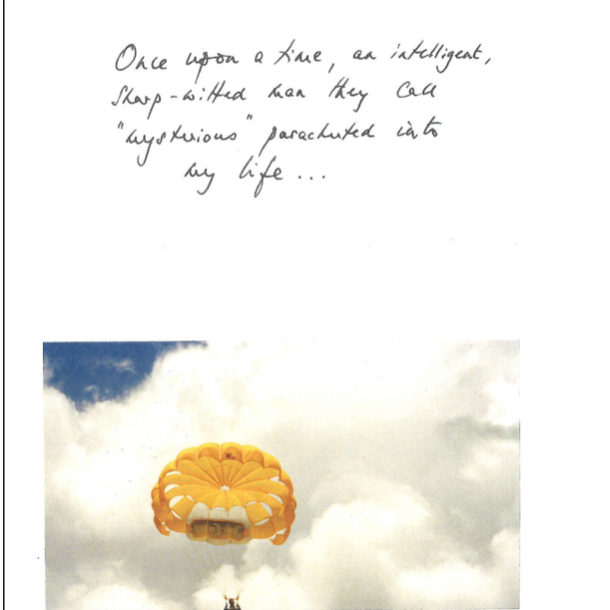 Once upon a time, an intelligent,
sharp-witted man they call
"mysterious" parachuted into
my life...